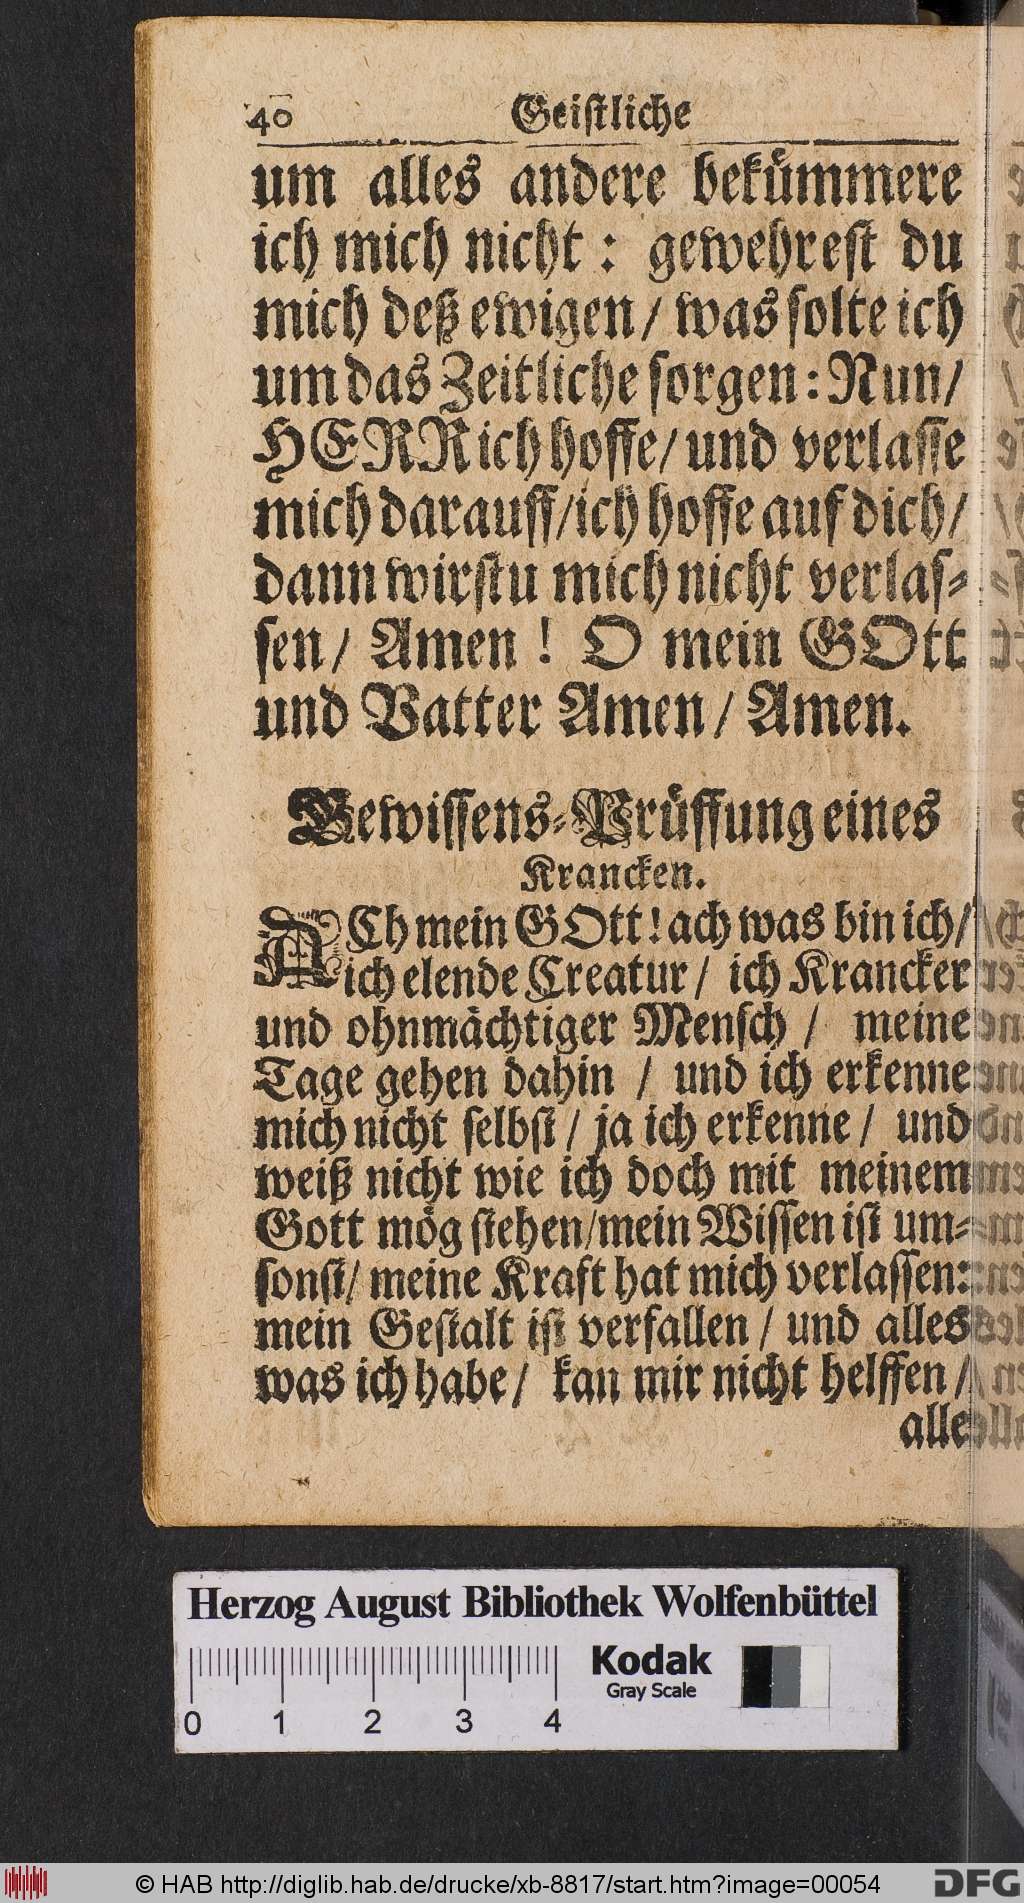 40 Geiſtliche
um alles andere bekümmere
ich mich nicht: gewehreſt du
mich deß ewigen/ was ſolte ich
um das Zeitliche ſorgen: Nun/
HERR ich hoffe/ und verlaſſe
mich darauff/ ich hoffe auf dich/
dann wirſtu mich nicht verlaſ-
ſen/ Amen! O mein GOtt
und Vatter Amen/ Amen.
Gewiſſens-Prüffung eines
Krancken.
ACh mein GOtt! ach was bin ich/
ich elende Creatur/ ich Krancker
und ohnmächtiger Menſch/ meine
Tage gehen dahin / und ich erkenne
mich nicht ſelbſt/ ja ich erkenne/ und
weiß nicht wie ich doch mit meinem
Gott mög ſtehen/ mein Wiſſen iſt um-
ſonſt/ meine Kraft hat mich verlaſſen:
mein Geſtalt iſt verfallen/ und alles
was ich habe/ kan mir nicht helffen/
alle
Herzog August Bibliothek Wolfenbüttel
Kodak
Gray Scale
0 1 2 3 4
© HAB http://diglib.hab.de/drucke/xb-8817/start.htm?image=00054
DFG